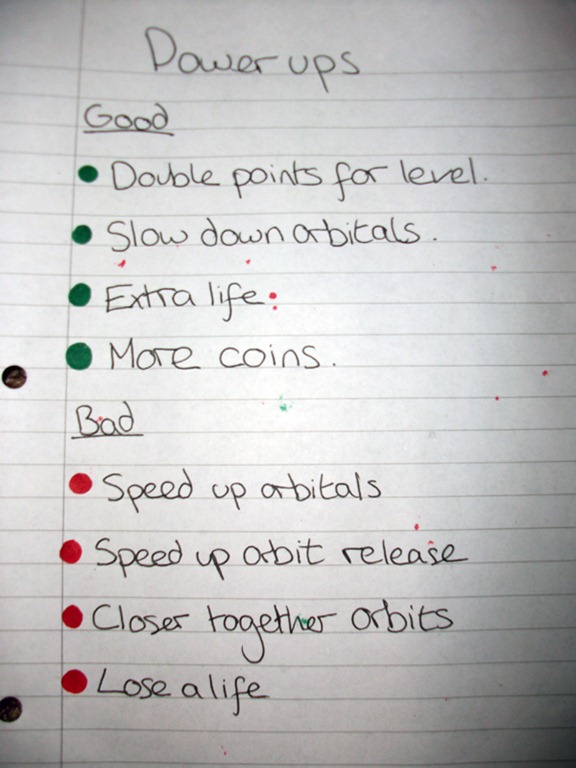 Power ups
Good
Double points for level.
Slow down orbitals.
Extra life.
More coins.
Bad
Speed up orbitals
Speed up orbit release
Closer together orbits
Lose a life